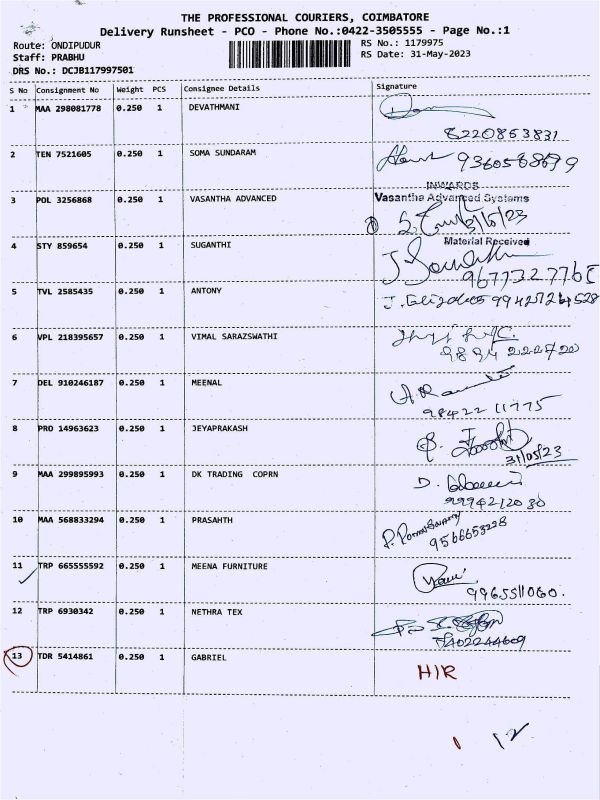 THE PROFESSIONAL COURIERS, COIMBATORE
Delivery Runsheet - PCO - Phone No.:0422-3505555 - Page No.:1
Route: ONDIPUDUR
RS No.: 1179975
Staff: PRABHU
RS Date: 31-May-2023
DRS No.: DCJB117997501
S No Consignment No Weight PCS Consignee Details Signature
1 MAA 298081778 0.250 1 DEVATHMANI
8220863831
2 TEN 7521605 0.250 1 SOMA SUNDARAM
INWARDS
3 POL 3256868 0.250 1 VASANTHA ADVANCED Vasantha Advanced Systems
4 STY 859654 0.250 1 SUGANTHI Material Received
9677327765
5 TVL 2585435 0.250 1 ANTONY
6 VPL 218395657 0.250 1 VIMAL SARAZSWATHI
7 DEL 910246187 0.250 1 MEENAL
98422 11775
8 PRO 14963623 0.250 1 JEYAPRAKASH
31/05/23
9 MAA 299895993 0.250 1 DK TRADING COPRN
9994212030
10 MAA 568833294 0.250 1 PRASAHTH
9566653228
11 TRP 665555592 0.250 1 MEENA FURNITURE
9965511060.
12 TRP 6930342 0.250 1 NETHRA TEX
7402244609
13 TDR 5414861 0.250 1 GABRIEL
H/R